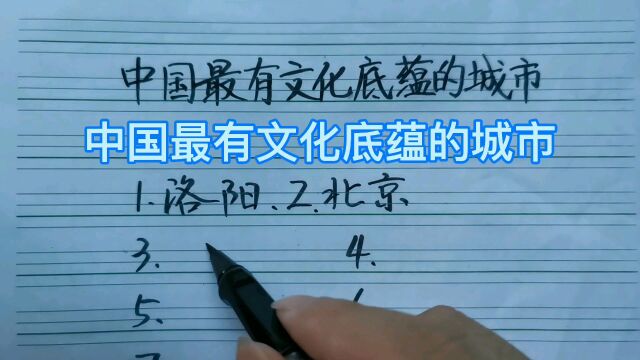 中国最有文化底蕴的城市
中国最有文化底蕴的城市
1.洛阳、2.北京
3. 4.
5.